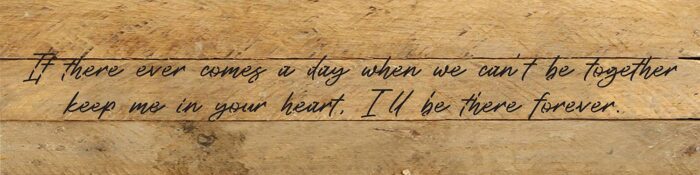 If there ever comes a day when we can't be together
keep me in your heart, I'll be there forever.